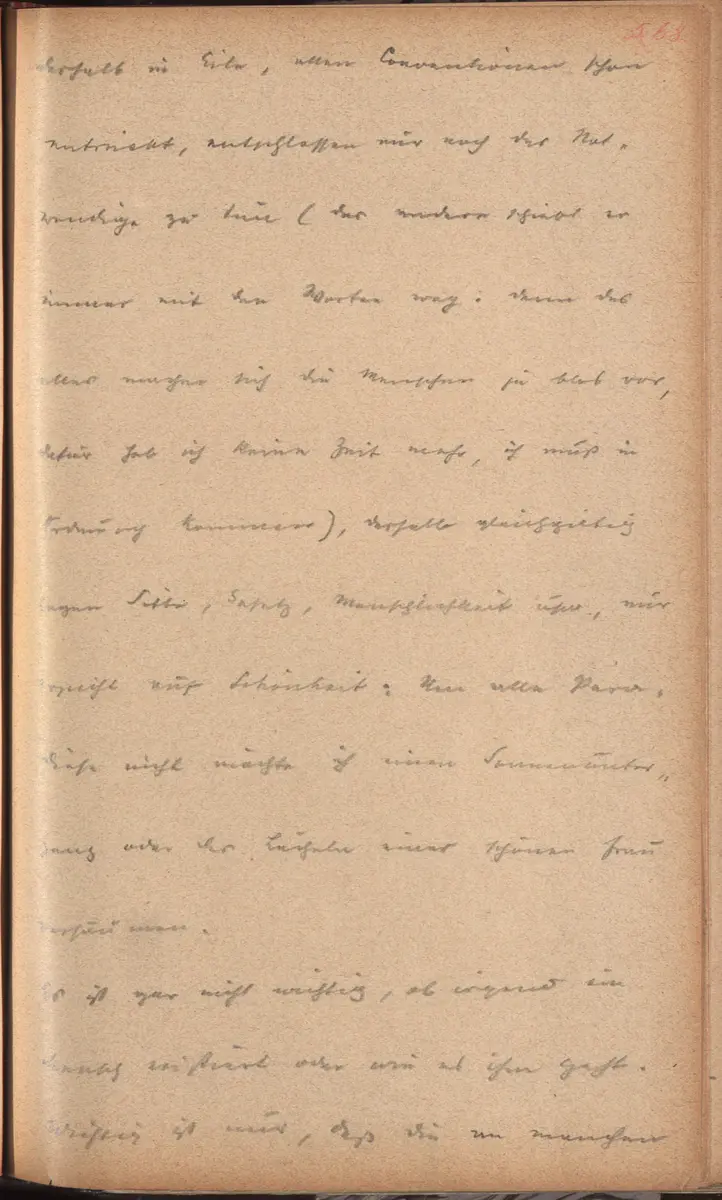 568
deshalb in Eile, allen Conventionen schon
entrückt, entschlossen nur noch das Not-
wendige zu tun (das andere schiebt er
immer mit den Worten weg: denn das
alles machen sich die Menschen ja blos vor,
dafür hab ich keine Zeit mehr, ich muß in
Ordnung kommen), deshalb gleichgiltig
gegen Sitte, Gesetz, Menschlichkeit usw., nur
erpicht auf Schönheit: Um alle Para-
diese nicht möchte ich einen Sonnenunter-
gang oder das Lächeln einer schönen Frau
versäumen.
Es ist gar nicht wichtig, ob irgend ein
Mensch existiert oder wie es ihm geht.
Wichtig ist nur, daß die an manchen